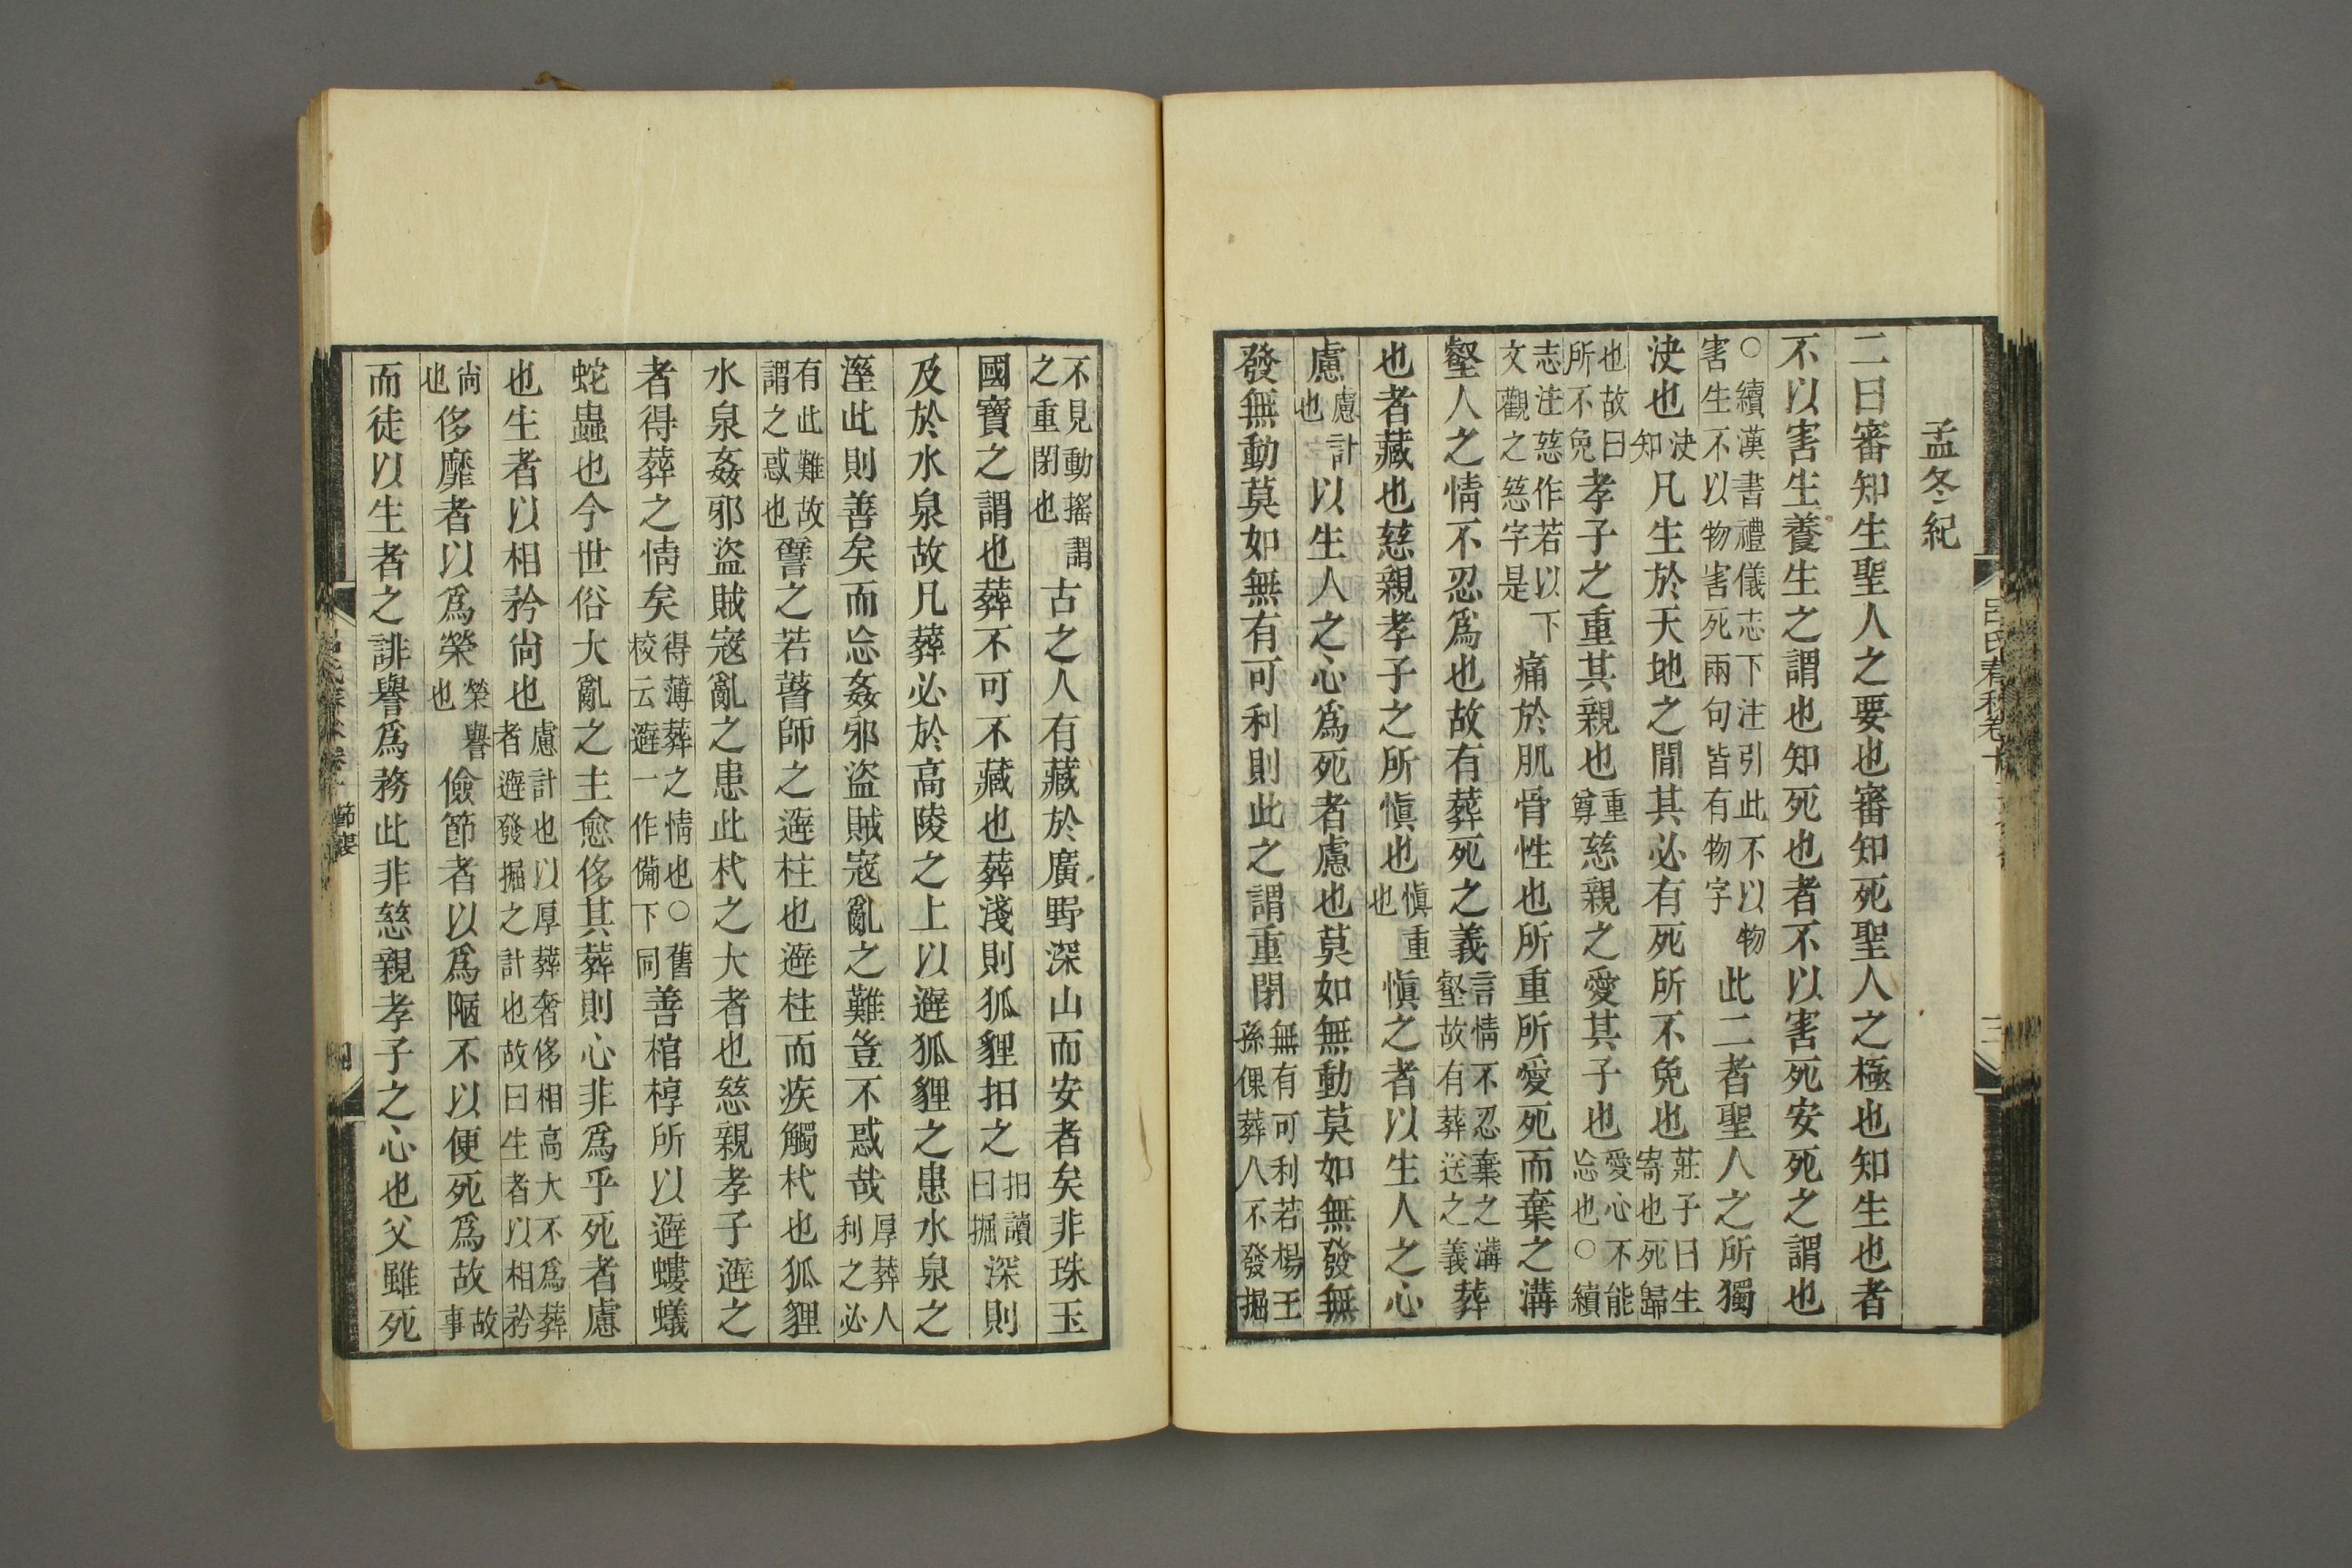 孟冬紀
二曰審知生聖人之要也審知死聖人之極也知生也者
不以害生養生之謂也知死也者不以害死安死之謂也
○續漢書禮儀志下注引此不以物害生不以物害死兩句皆有物字此二者聖人之所獨
決也決知凡生於天地之間其必有死所不免也莊子曰生寄也死歸
也故曰所不免孝子之重其親也重尊慈親之愛其子也愛心不能忘也○續
志注慈作若以下文觀之慈字是痛於肌骨性也所重所愛死而棄之溝
壑人之情不忍爲也故有葬死之義言情不忍棄之溝壑故有葬送之義葬
也者藏也慈親孝子之所愼也愼重也愼之者以生人之心
慮慮計也以生人之心爲死者慮也莫如無動莫如無發無
發無動莫如無有可利則此之謂重閉無有可利若楊王孫倮葬人不發掘
不見動搖謂之重閉也古之人有藏於廣野深山而安者矣非珠玉
國寶之謂也葬不可不藏也葬淺則狐貍抇之抇讀曰掘深則
及於水泉故凡葬必於高陵之上以避狐貍之患水泉之
溼此則善矣而忘姦邪盜賊寇亂之難豈不惑哉厚葬人利之必
有此難故謂之惑也譬之若瞽師之避柱也避柱而疾觸杙也狐貍
水泉姦邪盜賊寇亂之患此杙之大者也慈親孝子避之
者得葬之情矣得薄葬之情也○舊校云避一作備下同善棺椁所以避螻蟻
蛇蟲也今世俗大亂之主愈侈其葬則心非爲乎死者慮
也生者以相矜尚也慮計也以厚葬奢侈相高大不爲葬者避發掘之計也故曰生者以相矜
尚也侈靡者以爲榮榮譽也儉節者以爲陋不以便死爲故故事
而徒以生者之誹譽爲務此非慈親孝子之心也父雖死
呂氏春秋卷十
節喪
四